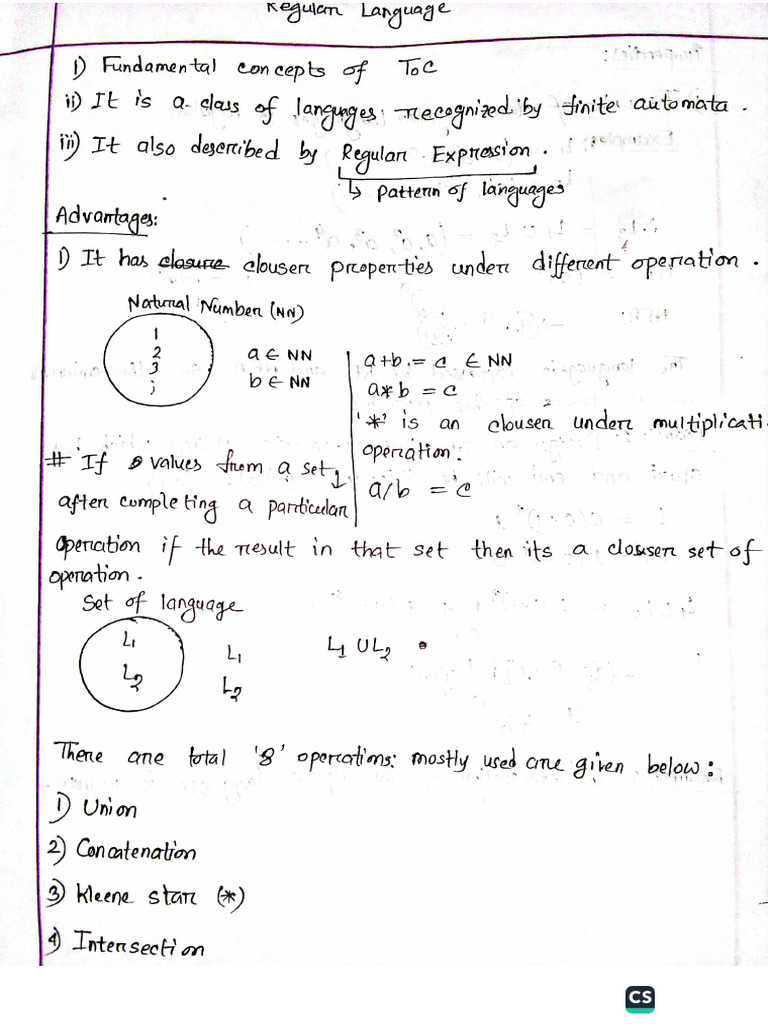 Regular Language
i) Fundamental concepts of ToC
ii) It is a class of languages recognized by finite automata.
iii) It also described by Regular Expression.
↳ pattern of languages
Advantages:
i) It has closure clouser properties under different operation.
Natural Number (NN)
1
2
3
;
a ∈ NN
b ∈ NN
a+b = c ∈ NN
a*b = c
'*' is an clouser under multiplicati
operation.
a/b = c
# If values from a set
after completing a particular
operation if the result in that set then its a clouser set of
operation.
Set of language
L1
L2
L1
L2
L1 U L2
There are total '8' operations: mostly used are given below:
1) Union
2) Concatenation
3) Kleene star (*)
4) Intersection
CS